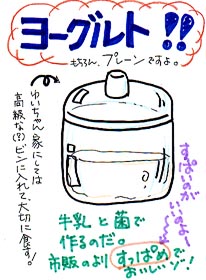 ヨーグルト!!
もちろん、プレーンですよ。
ゆいちゃん家にしては
高級な(?)ビンに入れて、大切に食す!
すっぱいのがいいすよー
牛乳と菌で
作るのだ。
市販のより すっぱめで
おいしいゾ!